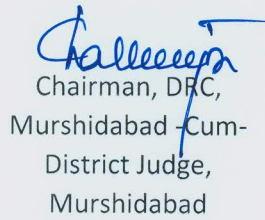 Chairman, DRC,
Murshidabad -Cum-
District Judge,
Murshidabad